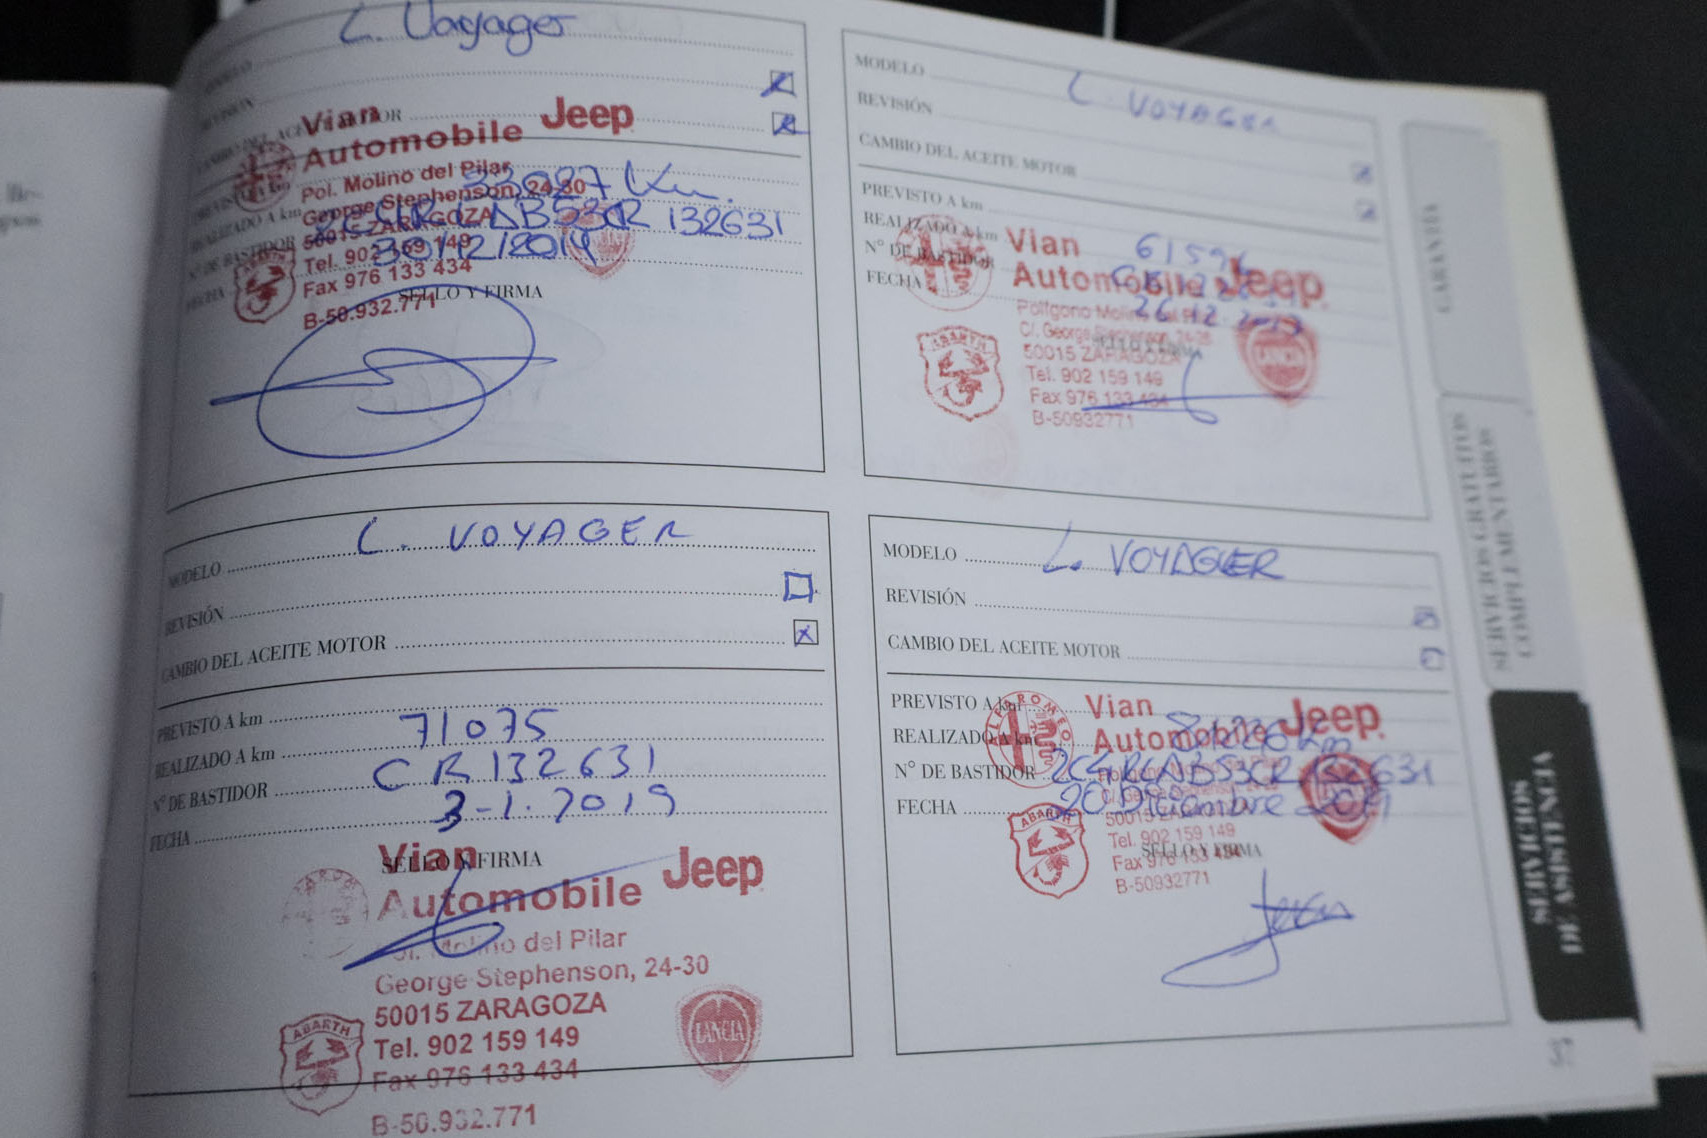 L. Voyager
REVISIÓN
Vian
Automobile Jeep
Pol. Molino del Pilar
George Stephenson, 24-30
50015 ZARAGOZA
Tel. 902 159 149
Fax 976 133 434
B-50.932.771
REALIZADO A km
Nº DE BASTIDOR
132631
FECHA
30/12/2014
ABARTH
SELLO Y FIRMA
MODELO L. VOYAGER
REVISIÓN
CAMBIO DEL ACEITE MOTOR
PREVISTO A km
REALIZADO A km
Nº DE BASTIDOR
FECHA
Vian
Automobile Jeep
50015 ZARAGOZA
Tel. 902 159 149
Fax 976 133 434
B-50932771
ABARTH
LANCIA
MODELO L. VOYAGER
REVISIÓN
CAMBIO DEL ACEITE MOTOR
PREVISTO A km
REALIZADO A km 71075
Nº DE BASTIDOR CR132631
FECHA 3-1-2019
SELLO Y FIRMA
Vian
Automobile Jeep
Molino del Pilar
George Stephenson, 24-30
50015 ZARAGOZA
Tel. 902 159 149
Fax 976 133 434
B-50.932.771
ABARTH
LANCIA
MODELO L. VOYAGER
REVISIÓN
CAMBIO DEL ACEITE MOTOR
PREVISTO A km
REALIZADO A km
Nº DE BASTIDOR
FECHA 20 Diciembre
Vian
Automobile Jeep
50015 ZARAGOZA
Tel. 902 159 149
Fax 976 133 434
B-50932771
ABARTH
SELLO Y FIRMA
GARANTÍA
SERVICIOS GRATUITOS
COMPLEMENTARIOS
SERVICIOS
DE ASISTENCIA
37